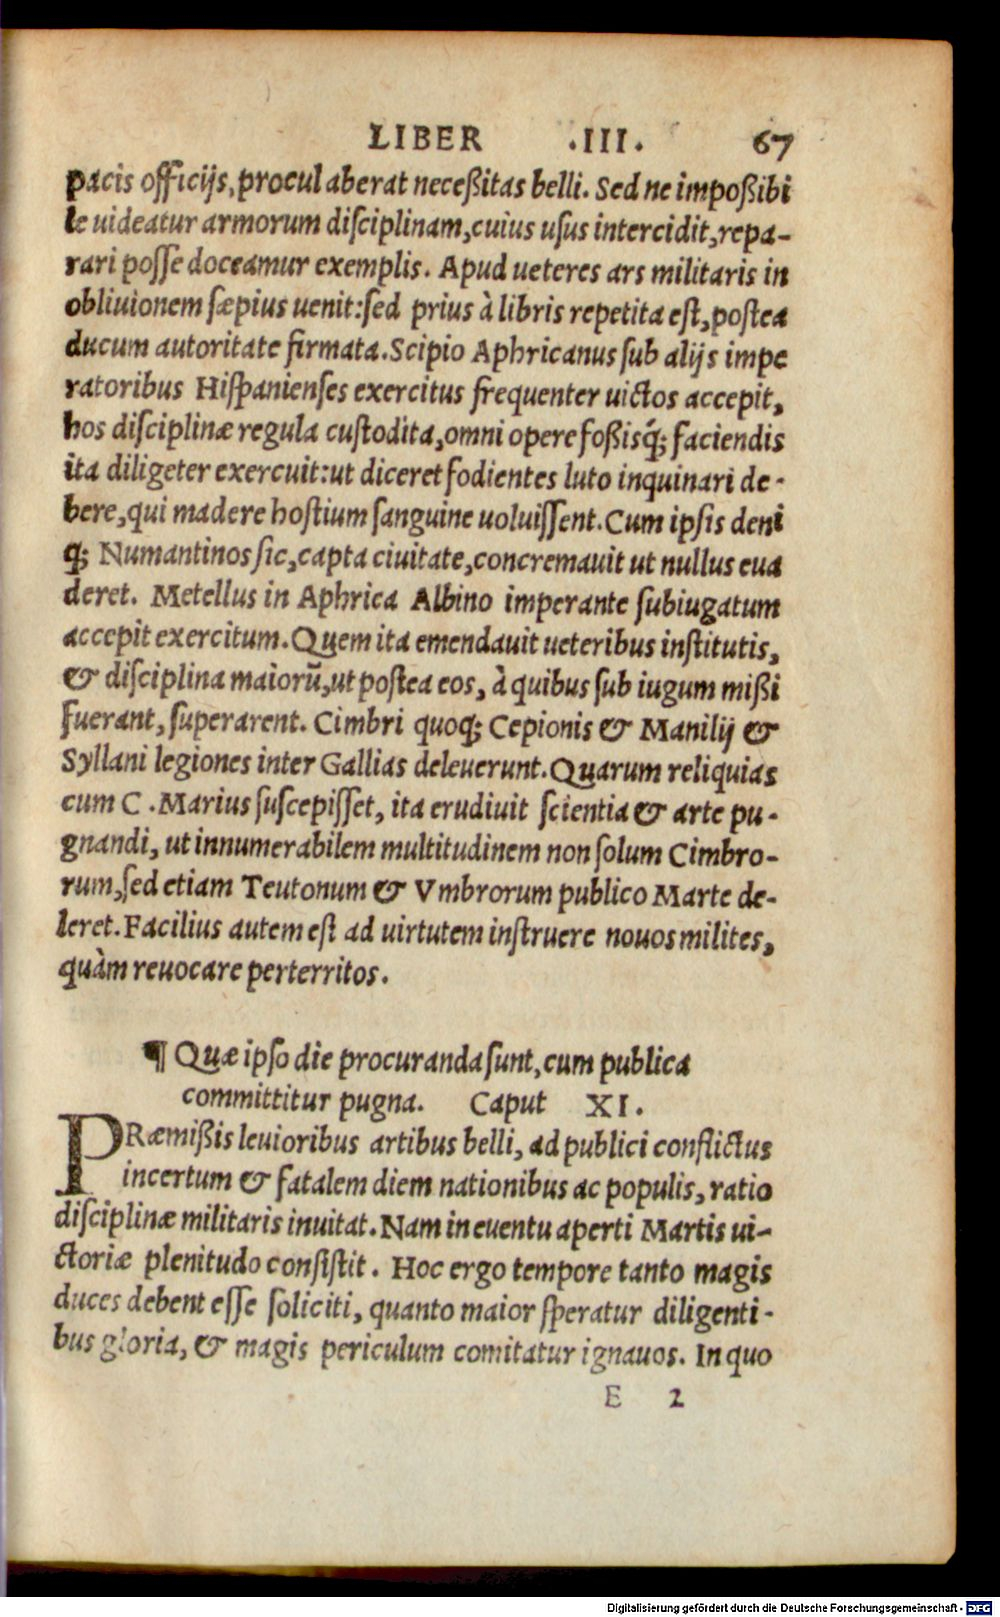 LIBER .III. 67
pacis officijs, procul aberat neceßitas belli. Sed ne impoßibi
le uideatur armorum diſciplinam, cuius uſus intercidit, repa-
rari poſſe doceamur exemplis. Apud ueteres ars militaris in
obliuionem ſæpius uenit: ſed prius à libris repetita eſt, poſtea
ducum autoritate firmata. Scipio Aphricanus ſub alijs impe
ratoribus Hiſpanienſes exercitus frequenter uictos accepit,
hos diſciplinæ regula cuſtodita, omni opere foßisq́; faciendis
ita diligeter exercuit: ut diceret fodientes luto inquinari de-
bere, qui madere hoſtium ſanguine uoluiſſent. Cum ipſis deni
q; Numantinos ſic, capta ciuitate, concremauit ut nullus eua
deret. Metellus in Aphrica Albino imperante ſubiugatum
accepit exercitum. Quem ita emendauit ueteribus inſtitutis,
& diſciplina maiorū, ut poſtea eos, à quibus ſub iugum mißi
fuerant, ſuperarent. Cimbri quoq; Cepionis & Manilij &
Syllani legiones inter Gallias deleuerunt. Quarum reliquias
cum C. Marius ſuſcepiſſet, ita erudiuit ſcientia & arte pu-
gnandi, ut innumerabilem multitudinem non ſolum Cimbro-
rum, ſed etiam Teutonum & Vmbrorum publico Marte de-
leret. Facilius autem eſt ad uirtutem inſtruere nouos milites,
quàm reuocare perterritos.
¶ Quæ ipſo die procuranda ſunt, cum publica
committitur pugna. Caput XI.
PRæmißis leuioribus artibus belli, ad publici conflictus
incertum & fatalem diem nationibus ac populis, ratio
diſciplinæ militaris inuitat. Nam in euentu aperti Martis ui-
ctoriæ plenitudo conſiſtit. Hoc ergo tempore tanto magis
duces debent eſſe ſoliciti, quanto maior ſperatur diligenti-
bus gloria, & magis periculum comitatur ignauos. In quo
E 2
Digitalisierung gefördert durch die Deutsche Forschungsgemeinschaft - DFG